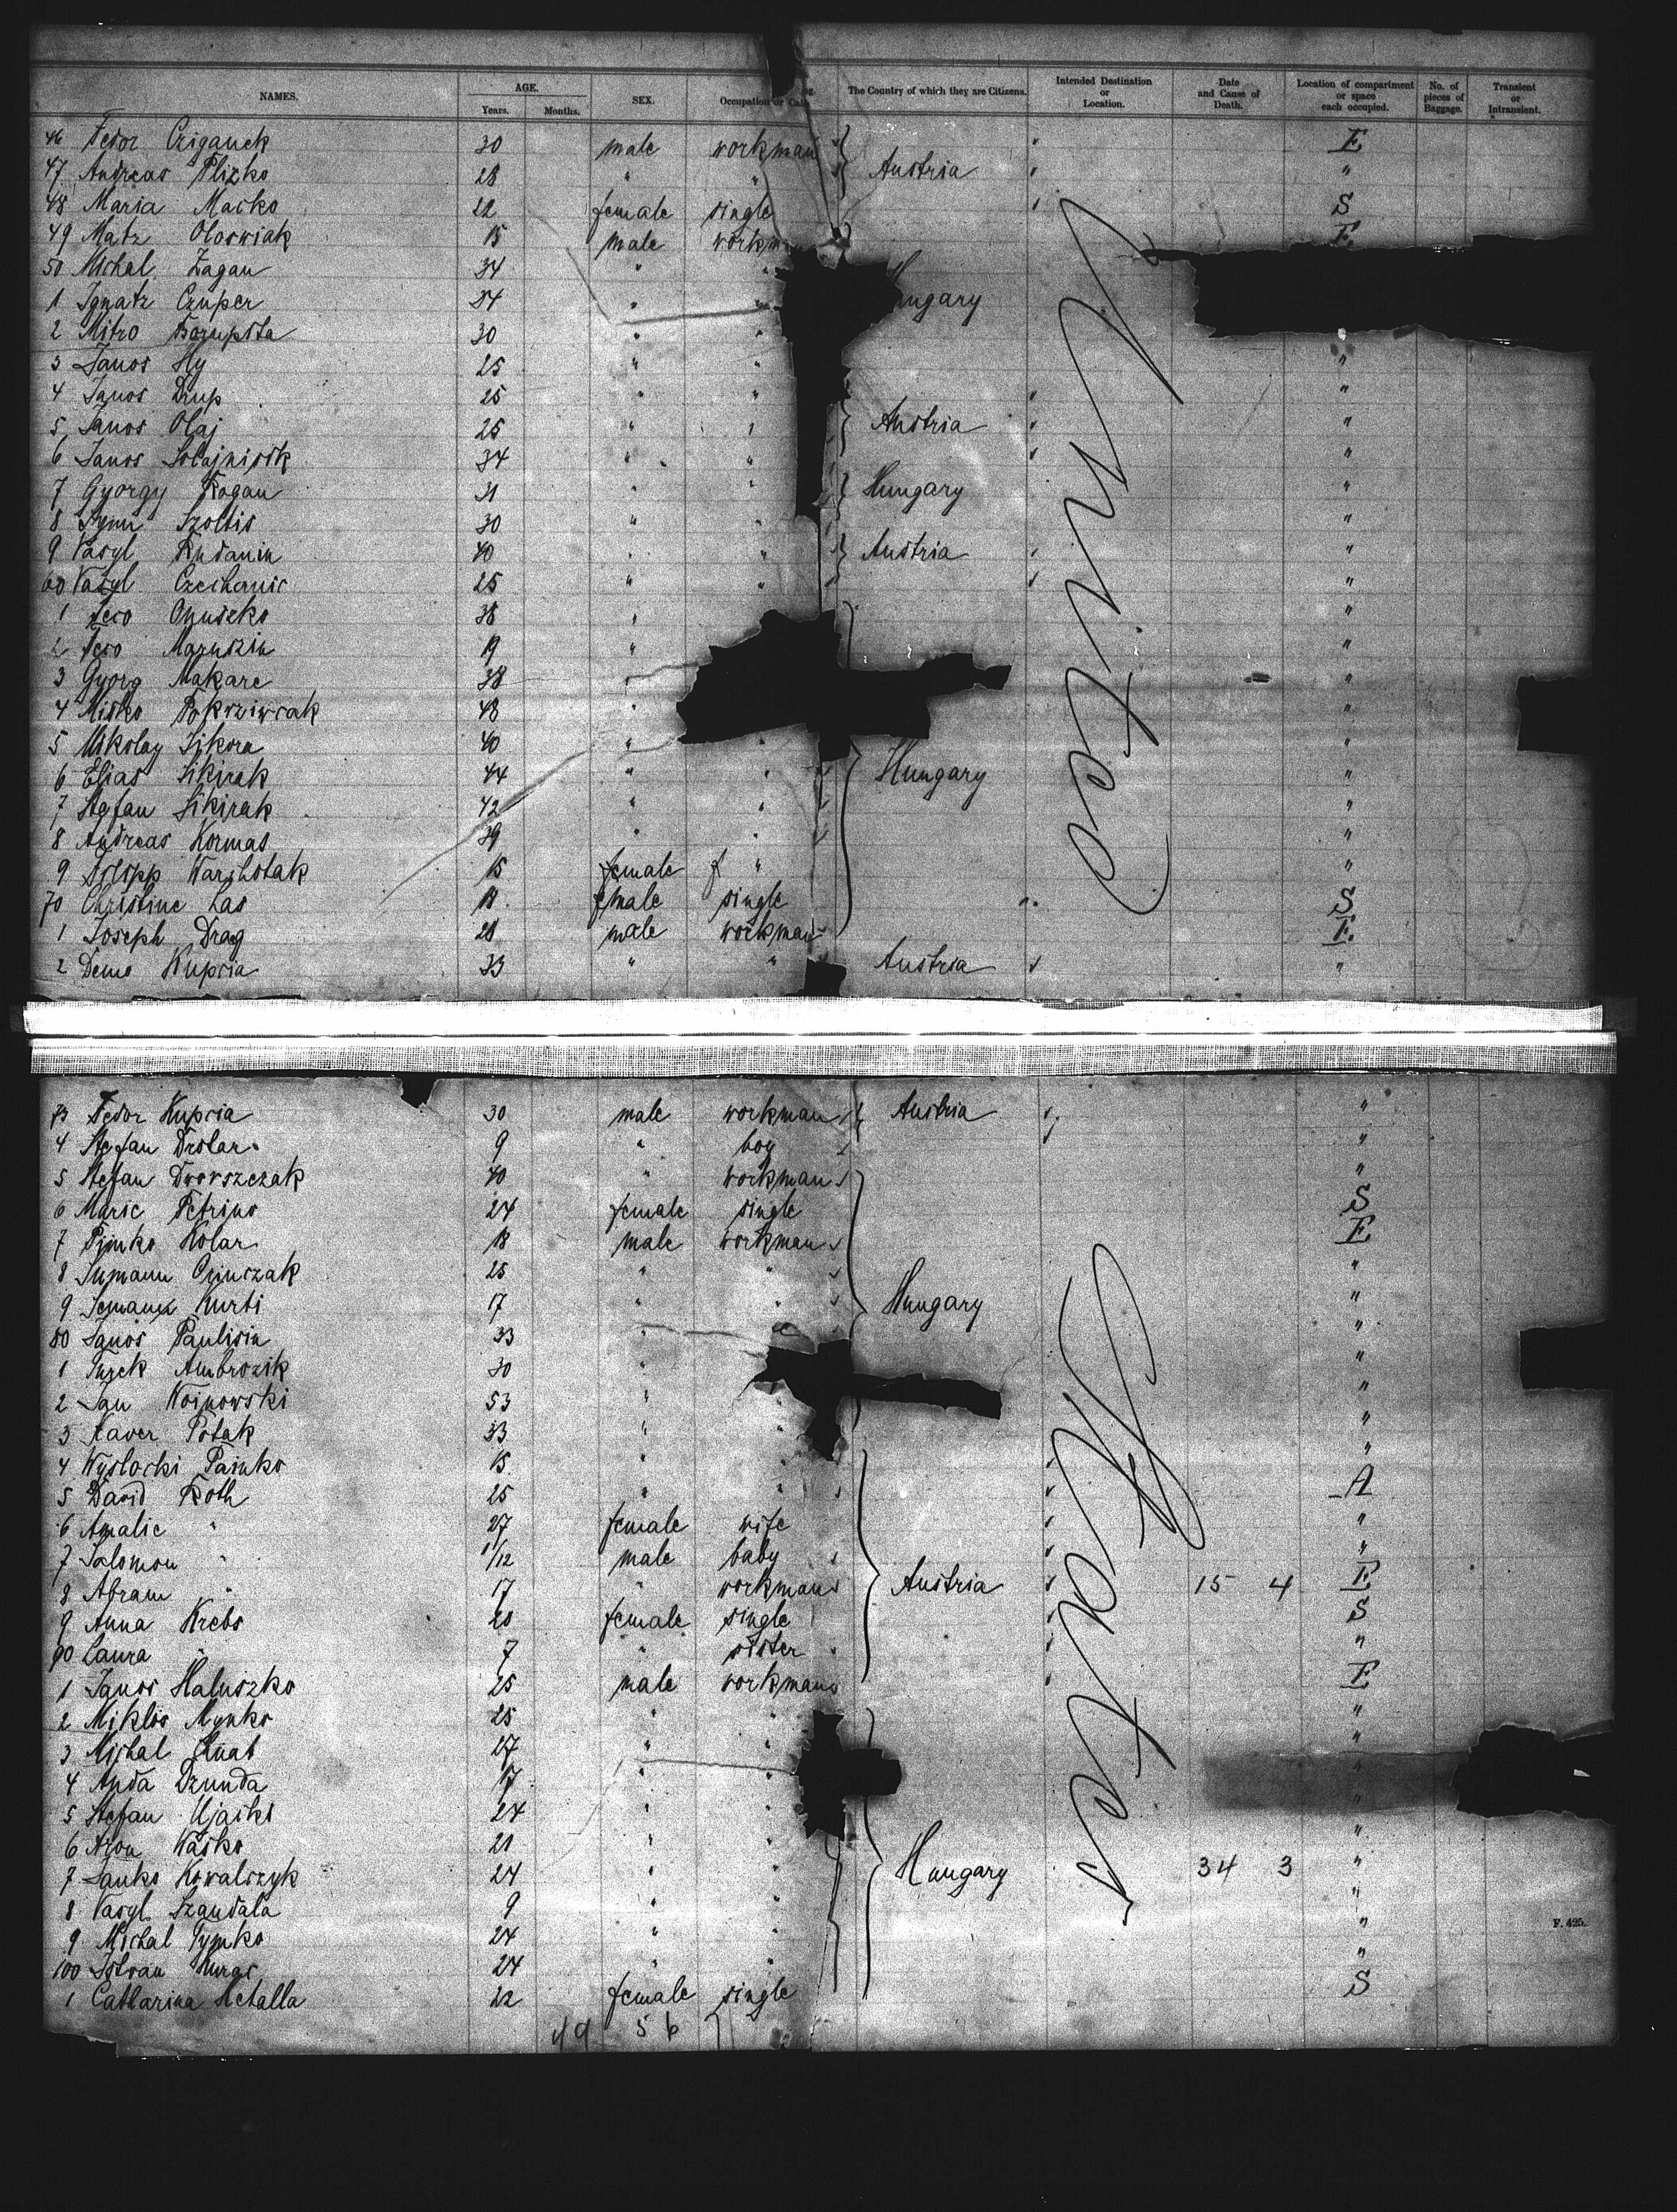 NAMES. AGE. SEX. Occupation or The Country of which they are Citizens. Intended Destination or Location. Date and Cause of Death. Location of compartment or space each occupied. No. of pieces of Baggage. Transient or Intransient.
Years. Months.
46 Fedor Cziganek 30 male workman E
47 Andreas Plizko 28 " " Austria "
48 Maria Macko 22 female single S
49 Matz Oloswiak 15 male workman E
50 Michal Zagan 34 " "
1 Ignatz Czuper 34 " " Hungary
2 Mitro 30 " "
3 Janos Hy 25 " " "
4 Janos Drup 25 " " "
5 Janos Olaj 25 " " Austria "
6 Janos 34 " " "
7 Gyorgy Rogan 31 " " Hungary "
8 Szoltis 30 " " "
9 Vasyl Rudanin 40 " " Austria "
60 Vasyl Czechanic 25 " " "
1 Feco Onuszko 38 " "
2 Feco Maruszin 19 " "
3 Gyorg Makare 38 " "
4 Misko Pokrziwcak 48 "
5 Mikolay Sikora 40 " " "
6 Elias Sikirak 44 " " Hungary "
7 Stefan Sikirak 42 " " "
8 Andreas Kormas 39 " " "
9 Warchotak 15 female f " "
70 Christine Las 18 female single S
1 Joseph Drag 28 male workman E
2 Demo Kupcia 33 " " Austria "
United
73 Fedor Kupcia 30 male workman Austria "
4 Stefan Drolar 9 " boy "
5 Stefan Dworszczak 40 " workman "
6 Marie Petrino 24 female single S
7 Kolar 18 male workman E
8 25 " " "
9 Kurti 17 " " Hungary "
80 Janos Paulisin 33 " " "
1 Ambrozik 30 " "
2 Jan Woinowski 53 " " "
3 Xaver Potak 33 " " "
4 Wyslocki Pamko 15 " " "
5 David Roth 25 " " A
6 Amalie " 27 female wife "
7 Salomon " 1/12 male baby "
8 Abram " 17 " workman Austria 15 4 E
9 Anna Krebs 20 female single S
90 Laura " 7 " sister "
1 Janos Haluszko 25 male workman E
2 Miklos Mynko 25 " " "
3 Michal Hnat 27 " " "
4 Anda Dzunda 17 " " "
5 Stefan Ujaiki 24 " "
6 Aron Wasko 21 " " "
7 Janko Kowalczyk 24 " " Hungary 34 3 "
8 Vasyl Szandala 9 " " "
9 Michal Tymko 24 " " "
100 Istvan Kuras 24 " " "
1 Catharina Hetalla 22 female single S
States
49 56
F. 425.